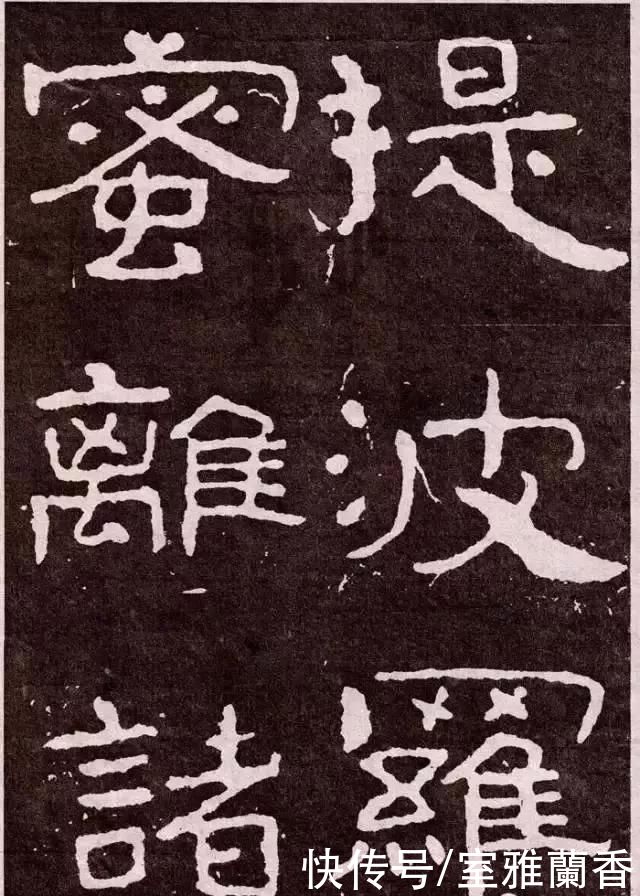 提波羅
蜜離諸
快传号/室雅蘭香